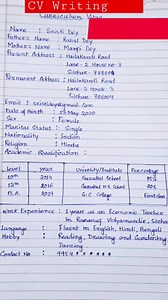 CV Writing
Curriculum Vitae
Name : Smiti Dey
Father's Name : Rahul Dey
Mother's Name : Mampi Dey
Present Address : Hailakandi Road
Lane-2, House no-3
Silchar-788005
Permanent Address : Hailakandi Road
Lane-2, House-3
Silchar-
Email : smitidey@gmail.com
Date of Birth : 5th May 2000
Sex : Female
Marital Status : Single
Nationality : Indian
Religion : Hindu
Academic Qualification :
Level year University/Institute Percentage
10th 2014 Gurukul School 75%
12th 2016 Gurukul H.S School 80%
B.A. 2019 G.C. College First Class
Work Experience : 1 years as an Economic Teacher
in Ramanuj Vidyamandir, Silchar
Language : Fluent in English, Hindi, Bengali
Hobby : Reading, Drawing and Gardening
Dancing
Contact No : 9954